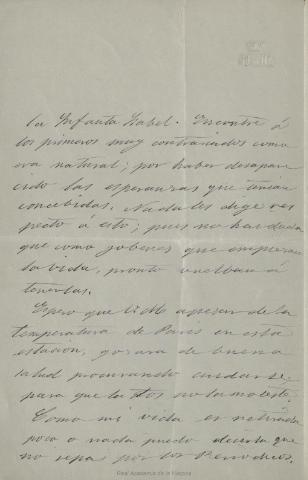 la Infanta Isabel. Encontré á
los primeros muy contrariados como
era natural; por haber desapare
cido las esperanzas que tenian
concebidas. Nada les dige res
pecto á esto; pues no hay duda
que como jobenes que empiezan
la vida, pronto vuelban á
tenerlas.
Espero que V. M. apesar de la
temperatura de Paris en esta
estacion, gozara de buena
salud procurando cuidarse,
para que la tos no la moleste.
Como mi vida es retirada
poco o nada puedo decirla que
no sepa por los Periodicos.
Real Academia de la Historia